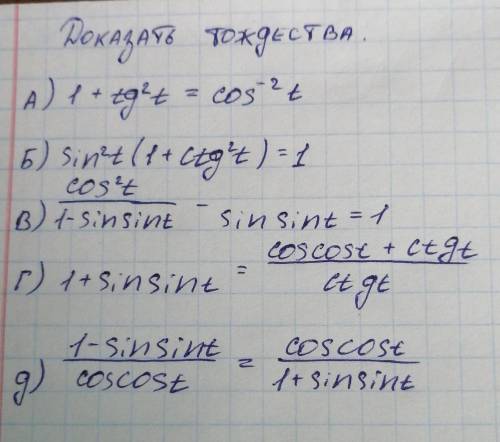 Доказать тождества.
А) 1 + tg²t = cos⁻²t
Б) sin²t(1 + ctg²t) = 1
В) cos²t / 1-sinsint - sinsint = 1
Г) 1 + sinsint = coscost + ctgt / ctgt
д) 1-sinsint / coscost = coscost / 1+sinsint